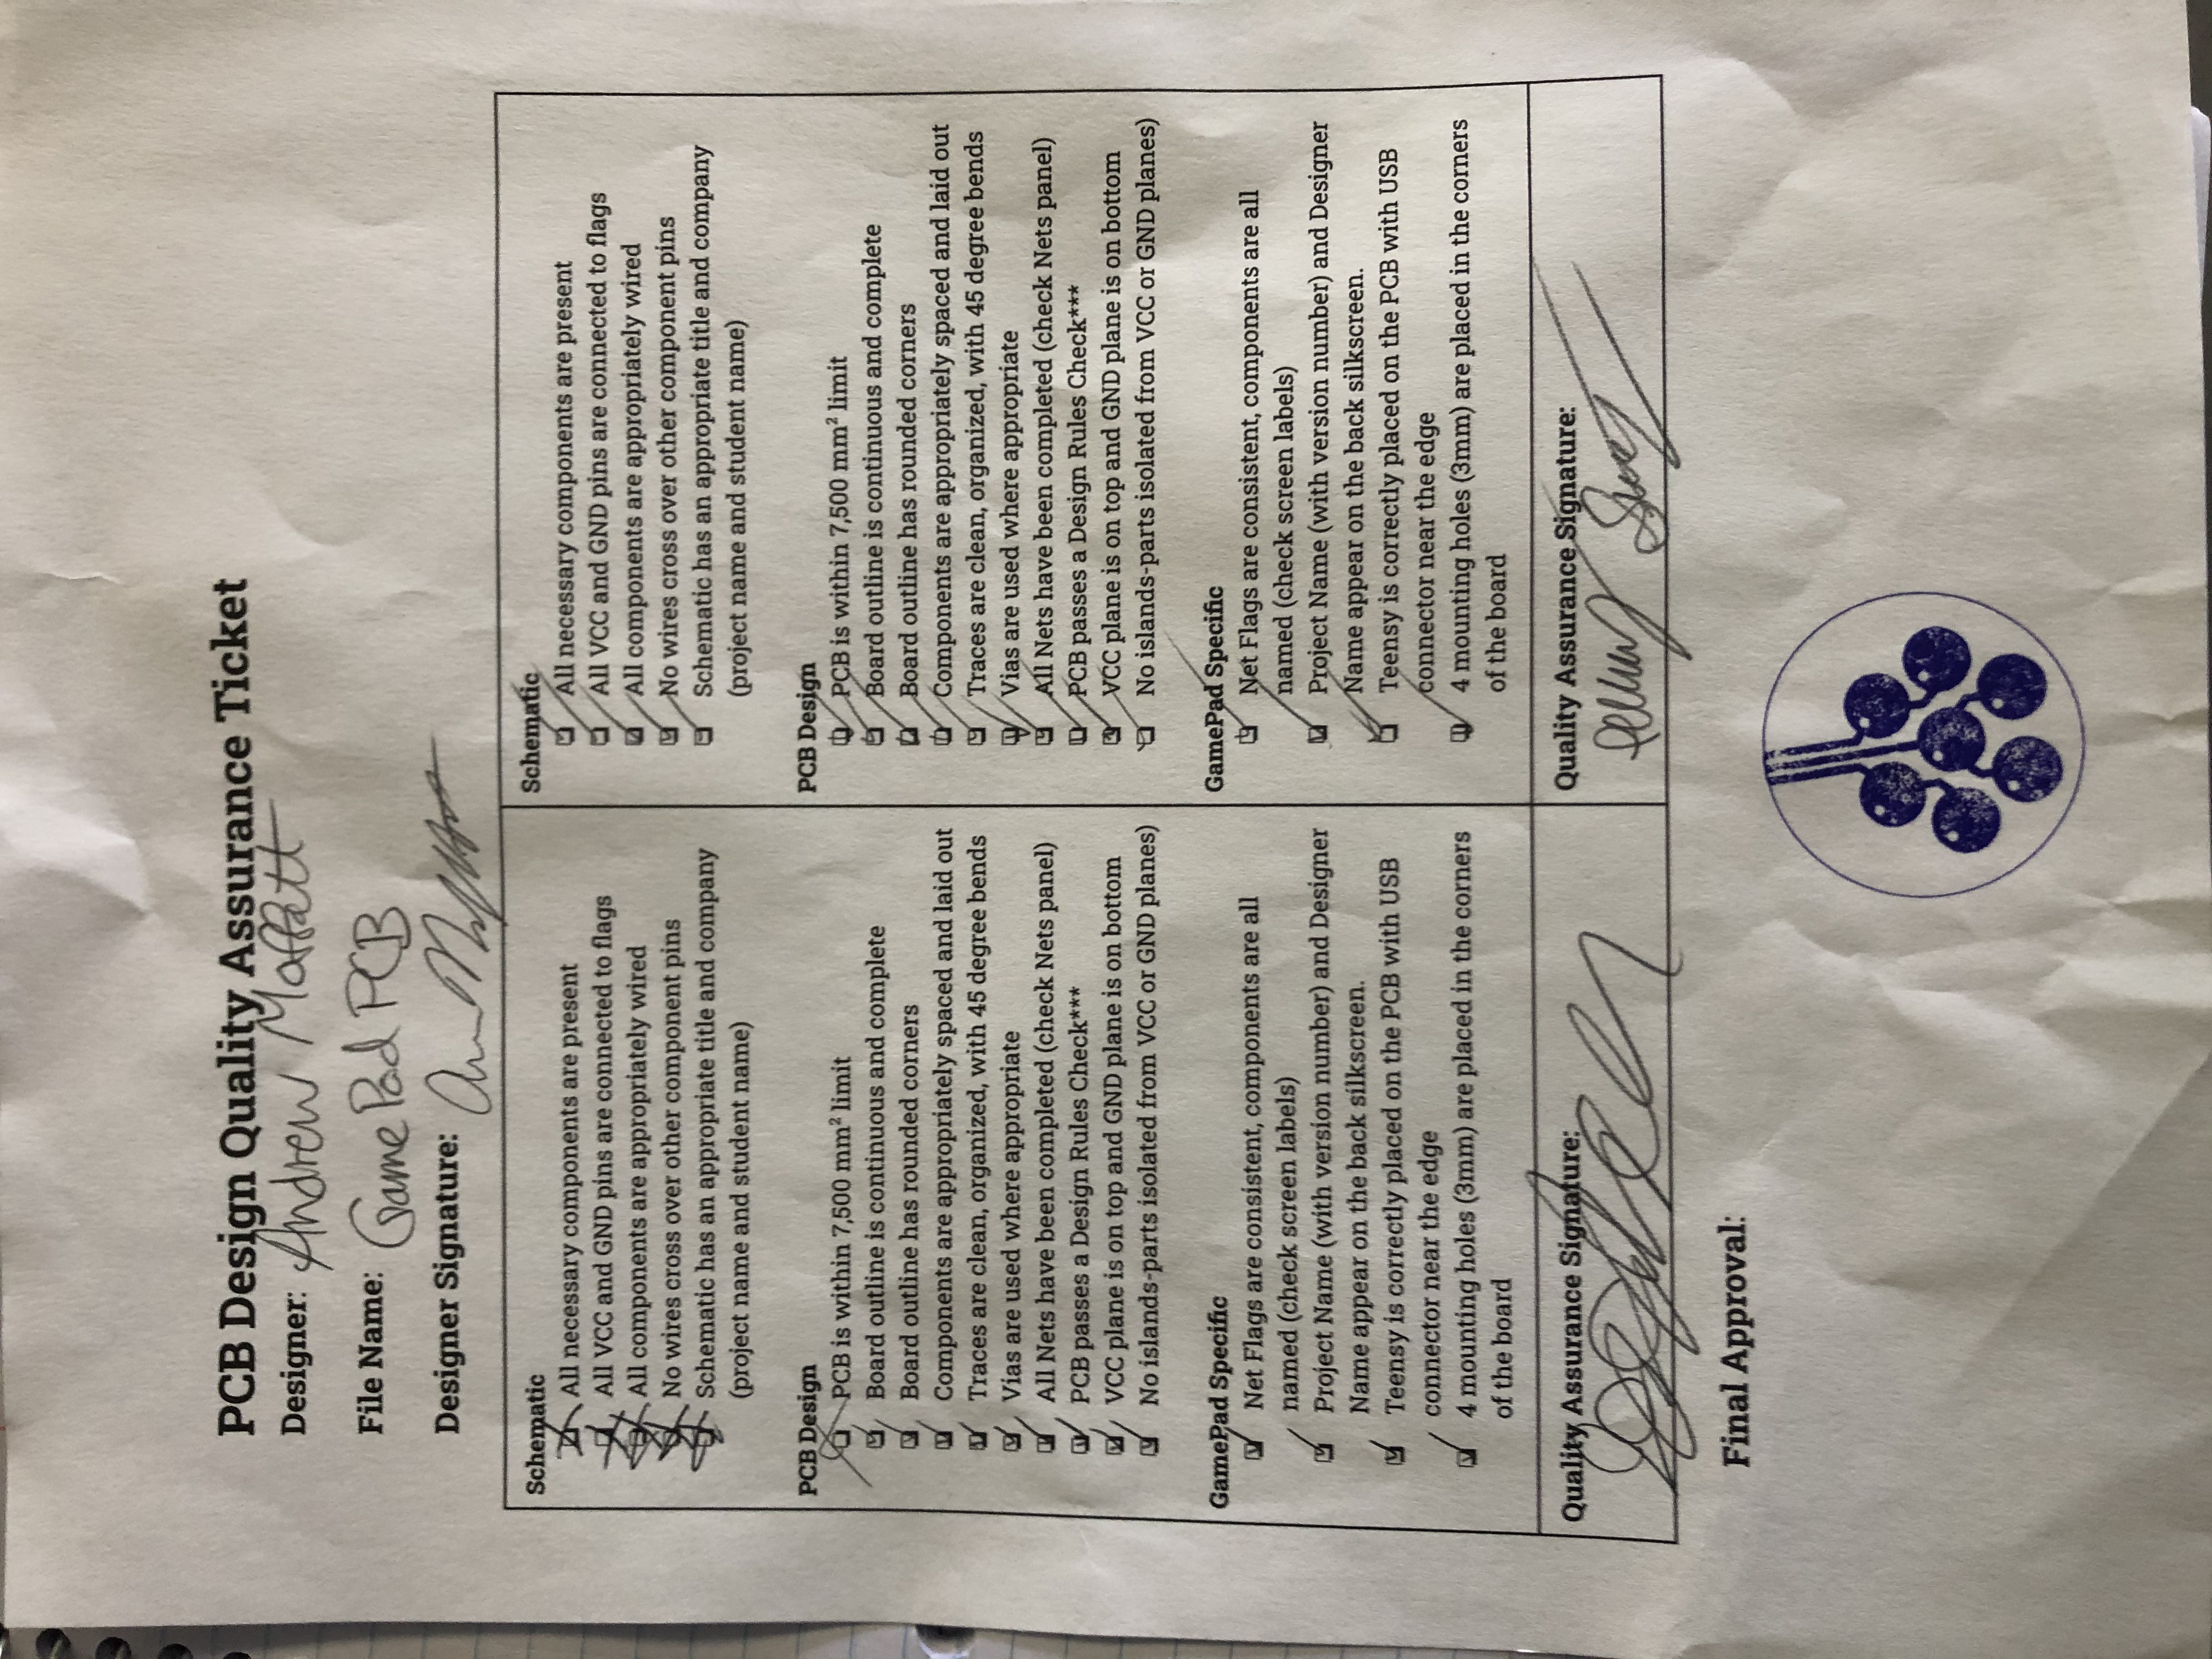 PCB Design Quality Assurance Ticket
Designer: Andrew Moffatt
File Name: GamePad PCB
Designer Signature:
Schematic
All necessary components are present
All VCC and GND pins are connected to flags
All components are appropriately wired
No wires cross over other component pins
Schematic has an appropriate title and company
(project name and student name)
PCB Design
PCB is within 7,500 mm² limit
Board outline is continuous and complete
Board outline has rounded corners
Components are appropriately spaced and laid out
Traces are clean, organized, with 45 degree bends
Vias are used where appropriate
All Nets have been completed (check Nets panel)
PCB passes a Design Rules Check***
VCC plane is on top and GND plane is on bottom
No islands-parts isolated from VCC or GND planes)
GamePad Specific
Net Flags are consistent, components are all
named (check screen labels)
Project Name (with version number) and Designer
Name appear on the back silkscreen.
Teensy is correctly placed on the PCB with USB
connector near the edge
4 mounting holes (3mm) are placed in the corners
of the board
Quality Assurance Signature:
Schematic
All necessary components are present
All VCC and GND pins are connected to flags
All components are appropriately wired
No wires cross over other component pins
Schematic has an appropriate title and company
(project name and student name)
PCB Design
PCB is within 7,500 mm² limit
Board outline is continuous and complete
Board outline has rounded corners
Components are appropriately spaced and laid out
Traces are clean, organized, with 45 degree bends
Vias are used where appropriate
All Nets have been completed (check Nets panel)
PCB passes a Design Rules Check***
VCC plane is on top and GND plane is on bottom
No islands-parts isolated from VCC or GND planes)
GamePad Specific
Net Flags are consistent, components are all
named (check screen labels)
Project Name (with version number) and Designer
Name appear on the back silkscreen.
Teensy is correctly placed on the PCB with USB
connector near the edge
4 mounting holes (3mm) are placed in the corners
of the board
Quality Assurance Signature:
Final Approval: